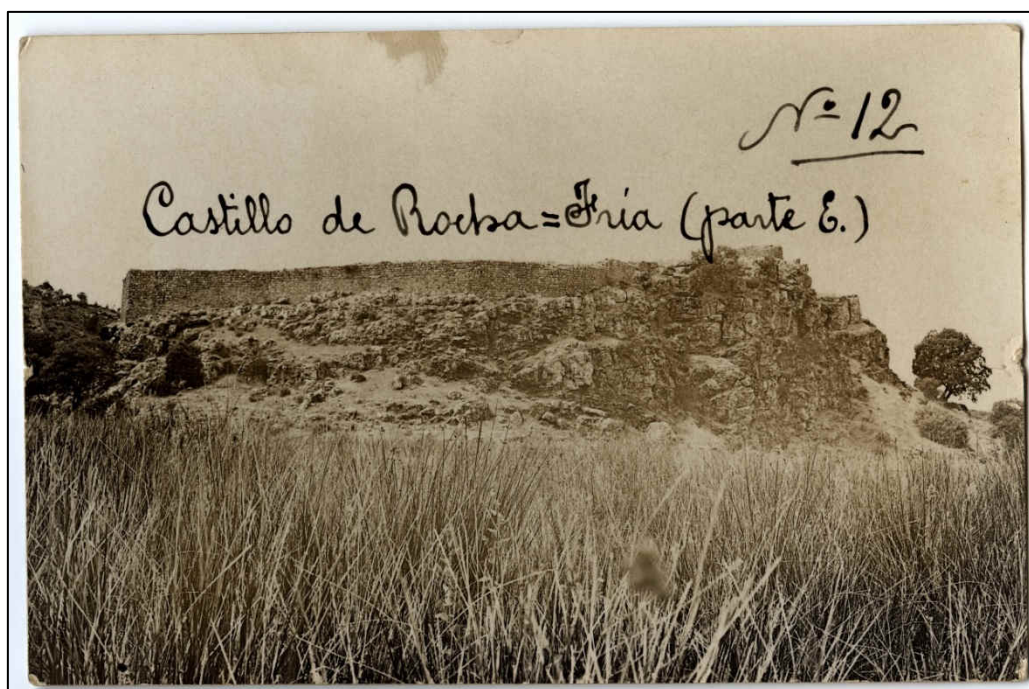 Nº 12
Castillo de Rocha=Fría (parte E.)